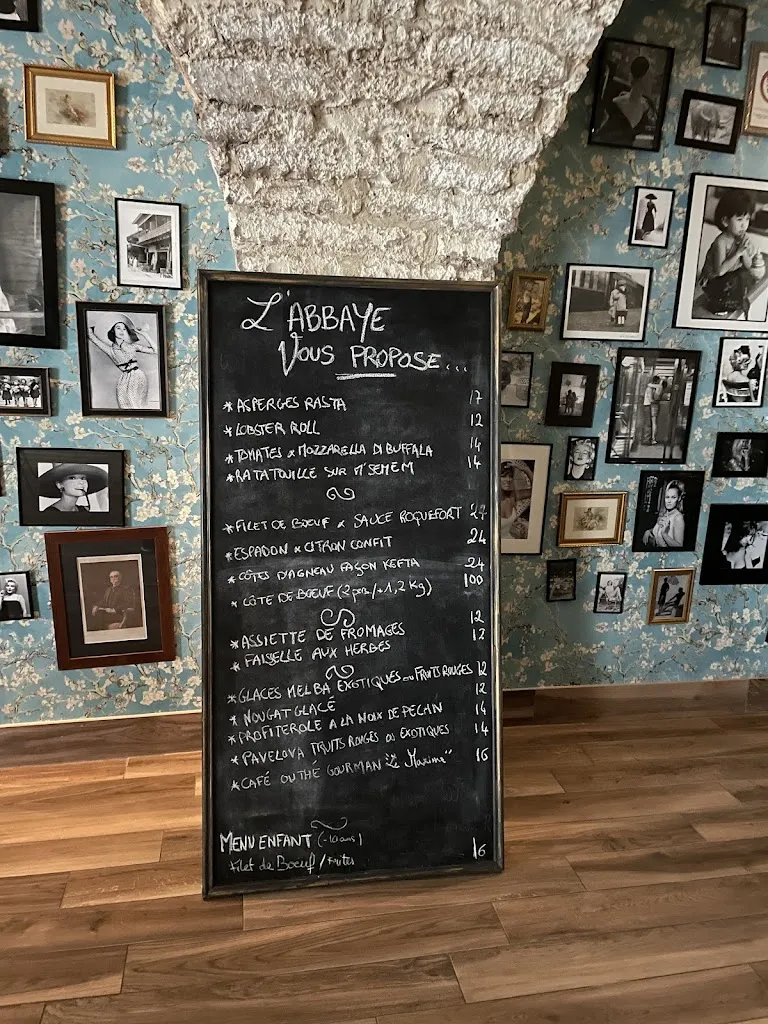 L'ABBAYE
VOUS PROPOSE...
* ASPERGES RASTA 17
* LOBSTER ROLL 12
* TOMATES x MOZZARELLA DI BUFFALA 14
* RATATOUILLE SUR M'SEMEM 14
* FILET DE BŒUF x SAUCE ROQUEFORT 27
* ESPADON x CITRON CONFIT 24
* CÔTES D'AGNEAU FAÇON KEFTA 24
* CÔTE DE BŒUF (2 pers/+1,2 Kg) 100
* ASSIETTE DE FROMAGES 12
* FAISSELLE AUX HERBES 12
* GLACES MELBA EXOTIQUES ou FRUITS ROUGES 12
* NOUGAT GLACÉ 12
* PROFITEROLE A LA NOIX DE PECAN 14
* PAVLOVA FRUITS ROUGES OU EXOTIQUES 14
* CAFÉ OU THÉ GOURMAN "Maxime" 16
MENU ENFANT (-10 ans)
Filet de Bœuf / frites 16